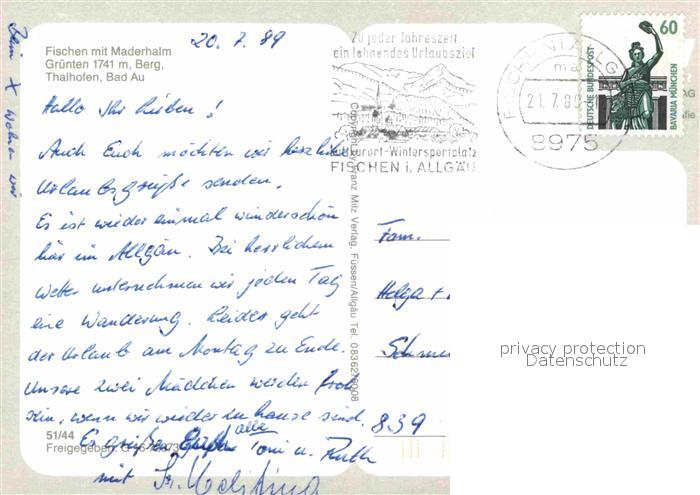 Beim X wohnen wir
Fischen mit Maderhalm
Grünten 1741 m, Berg,
Thalhofen, Bad Au
20.7.89
Hallo Ihr Lieben!
Auch Euch möchten wir herzliche
Urlaubsgrüße senden.
Es ist wieder einmal wunderschön
hier im Allgäu. Bei herrlichem
Wetter unternehmen wir jeden Tag
eine Wanderung. Leider geht
der Urlaub am Montag zu Ende.
Unsere zwei Mädchen werden froh
sein, wenn wir wieder zu hause sind.
Es grüßen Euch alle Toni u. Ruth
mit
51/44
Freigegeben:
Copyright by Franz Milz Verlag, Füssen/Allgäu Tel.
Zu jeder Jahreszeit
ein lohnendes Urlaubsziel
kurort-Wintersportplatz
FISCHEN i. ALLGÄU
FISCHEN I ALLG
ma
21.7.89
8975
60
DEUTSCHE BUNDESPOST
BAVARIA MÜNCHEN
Fam.
Helga +
839
privacy protection
Datenschutz